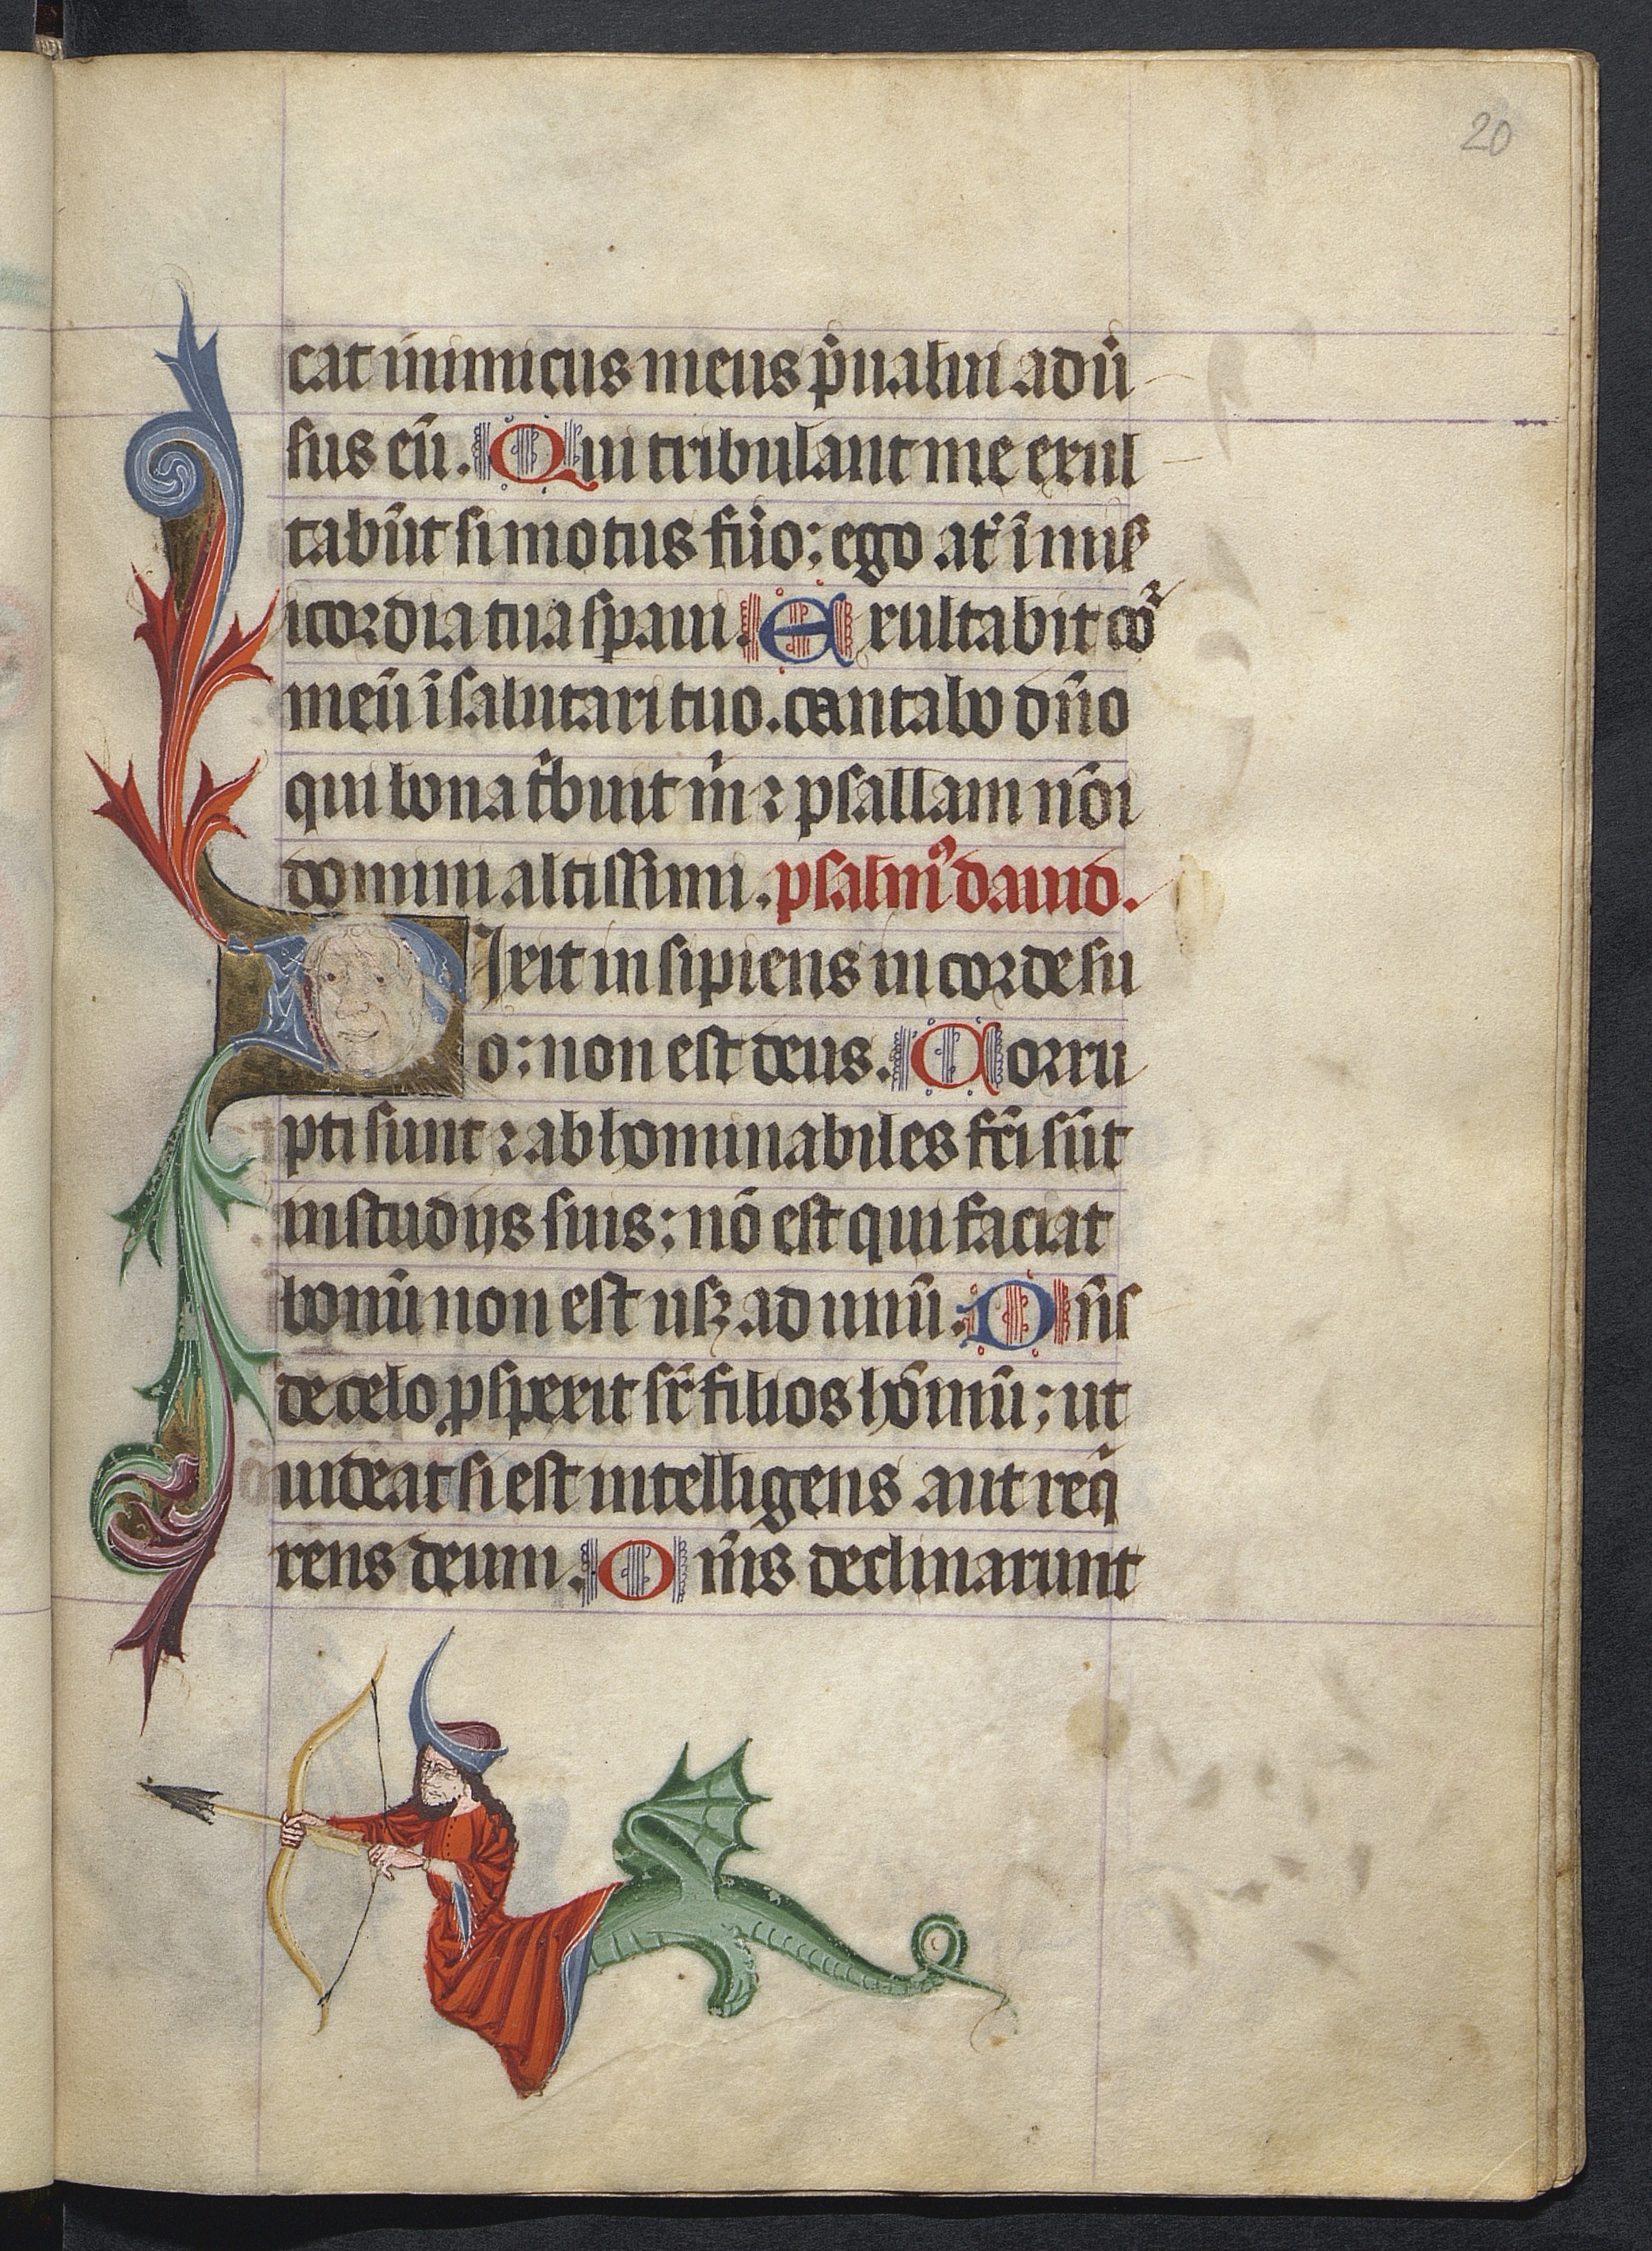 20
cat inimicus meus p̄ualui adū
sus eū. Qui tribulant me exul
tabūt si motus fūo: ego at̄ ī mis̄
icordia tua sp̄aui. Exultabit cor
meū ī salutari tuo. cantabo dn̄o
qui bona tͥbuit m̄ ⁊ psallam nōi
domini altissimi. psalm̄⁹ dauid.
Dixit insipiens in corde su
o: non est deus. Corru
pti sunt ⁊ abhominabiles fc̄i sūt
in studijs suis: nō est qui faciat
bonū non est usqꝫ ad unū. Dn̄s
de celo ꝓspexit sr̄ filios hōinū: ut
uideat si est intelligens aut req̄
rens deum. Om̄s declinarunt